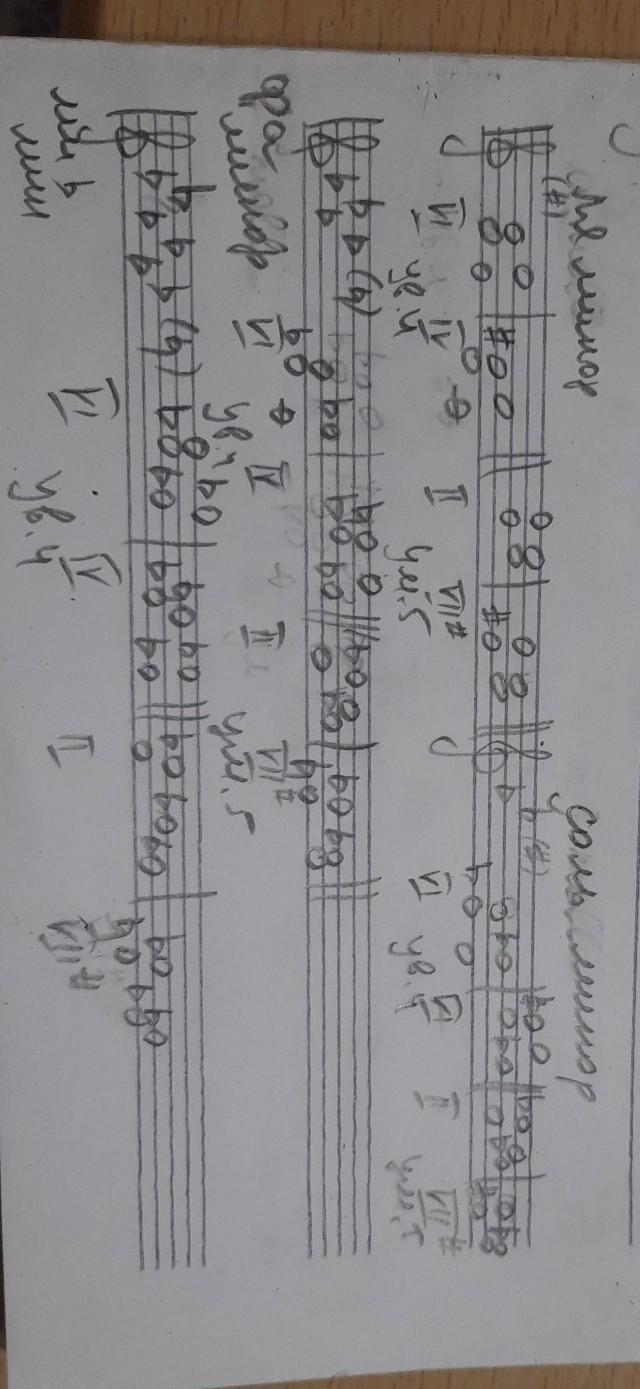 ля минор соль минор
VI ув.4 VI II VII# ум.5 VI ув.4 VI II VII# ум.5
фа минор
VI ув.4 II II VII# ум.5
ми ♭ мин
VI ув.4 VI II VII#